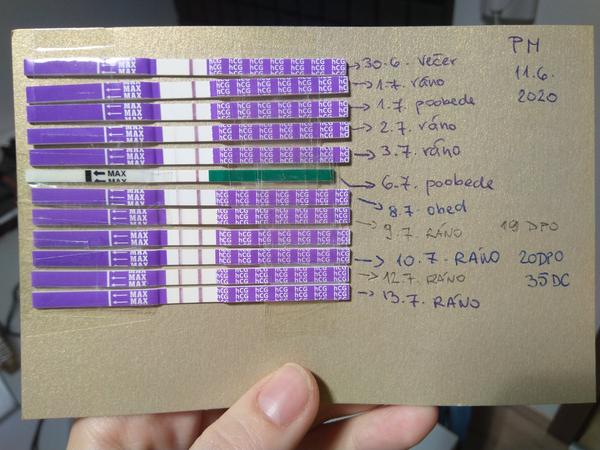 PM
11.6.
2020
MAX MAX hCG hCG hCG hCG hCG hCG hCG → 30.6. večer
MAX MAX hCG hCG hCG hCG hCG hCG → 1.7. ráno
MAX MAX hCG hCG hCG hCG hCG hCG → 1.7. poobede
MAX MAX hCG hCG hCG hCG hCG hCG → 2.7. ráno
MAX MAX hCG hCG hCG hCG hCG hCG → 3.7. ráno
← MAX MAX → 6.7. poobede
MAX MAX hCG hCG hCG hCG hCG hCG → 8.7. obed
MAX MAX hCG hCG hCG hCG hCG hCG → 9.7. RÁNO 19 DPO
MAX MAX hCG hCG hCG hCG hCG hCG
MAX MAX hCG hCG hCG hCG hCG hCG → 10.7. RÁNO 20DPO
MAX MAX hCG hCG hCG hCG hCG hCG → 12.7. RÁNO 35DC
MAX MAX hCG hCG hCG hCG hCG hCG → 13.7. RÁNO